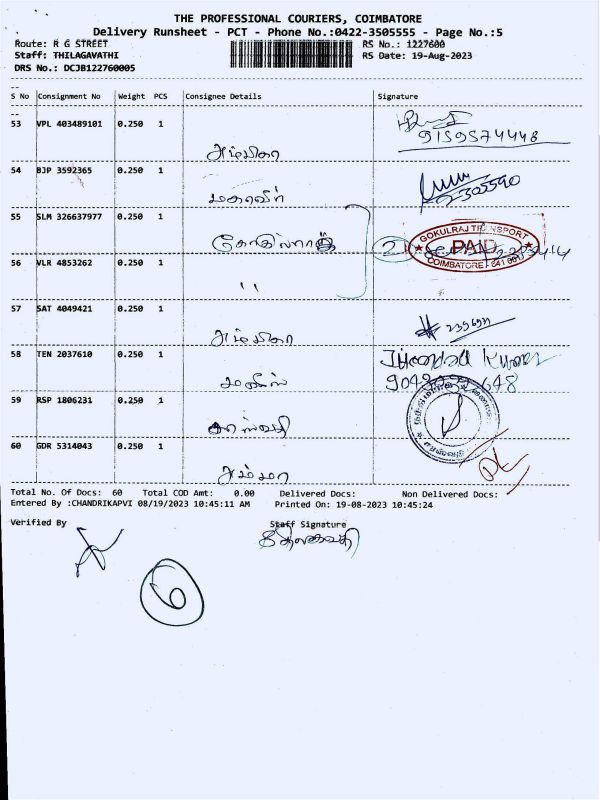 THE PROFESSIONAL COURIERS, COIMBATORE
Delivery Runsheet - PCT - Phone No.:0422-3505555 - Page No.:5
Route: R G STREET
RS No.: 1227600
Staff: THILAGAVATHI
RS Date: 19-Aug-2023
DRS No.: DCJB122760005
S No Consignment No Weight PCS Consignee Details Signature
53 VPL 403489101 0.250 1
9159574448
அம்பிகா
54 BJP 3592365 0.250 1
மகாவீர்
55 SLM 326637977 0.250 1
GOKULRAJ TRANSPORT
PAID
COIMBATORE - 641 001
56 VLR 4853262 0.250 1
"
57 SAT 4049421 0.250 1
அம்பிகா
58 TEN 2037610 0.250 1
59 RSP 1806231 0.250 1
60 GDR 5314043 0.250 1
அம்மா
Total No. Of Docs: 60 Total COD Amt: 0.00 Delivered Docs: Non Delivered Docs:
Entered By :CHANDRIKAPVI 08/19/2023 10:45:11 AM Printed On: 19-08-2023 10:45:24
Verified By
Staff Signature
திலகவதி
6